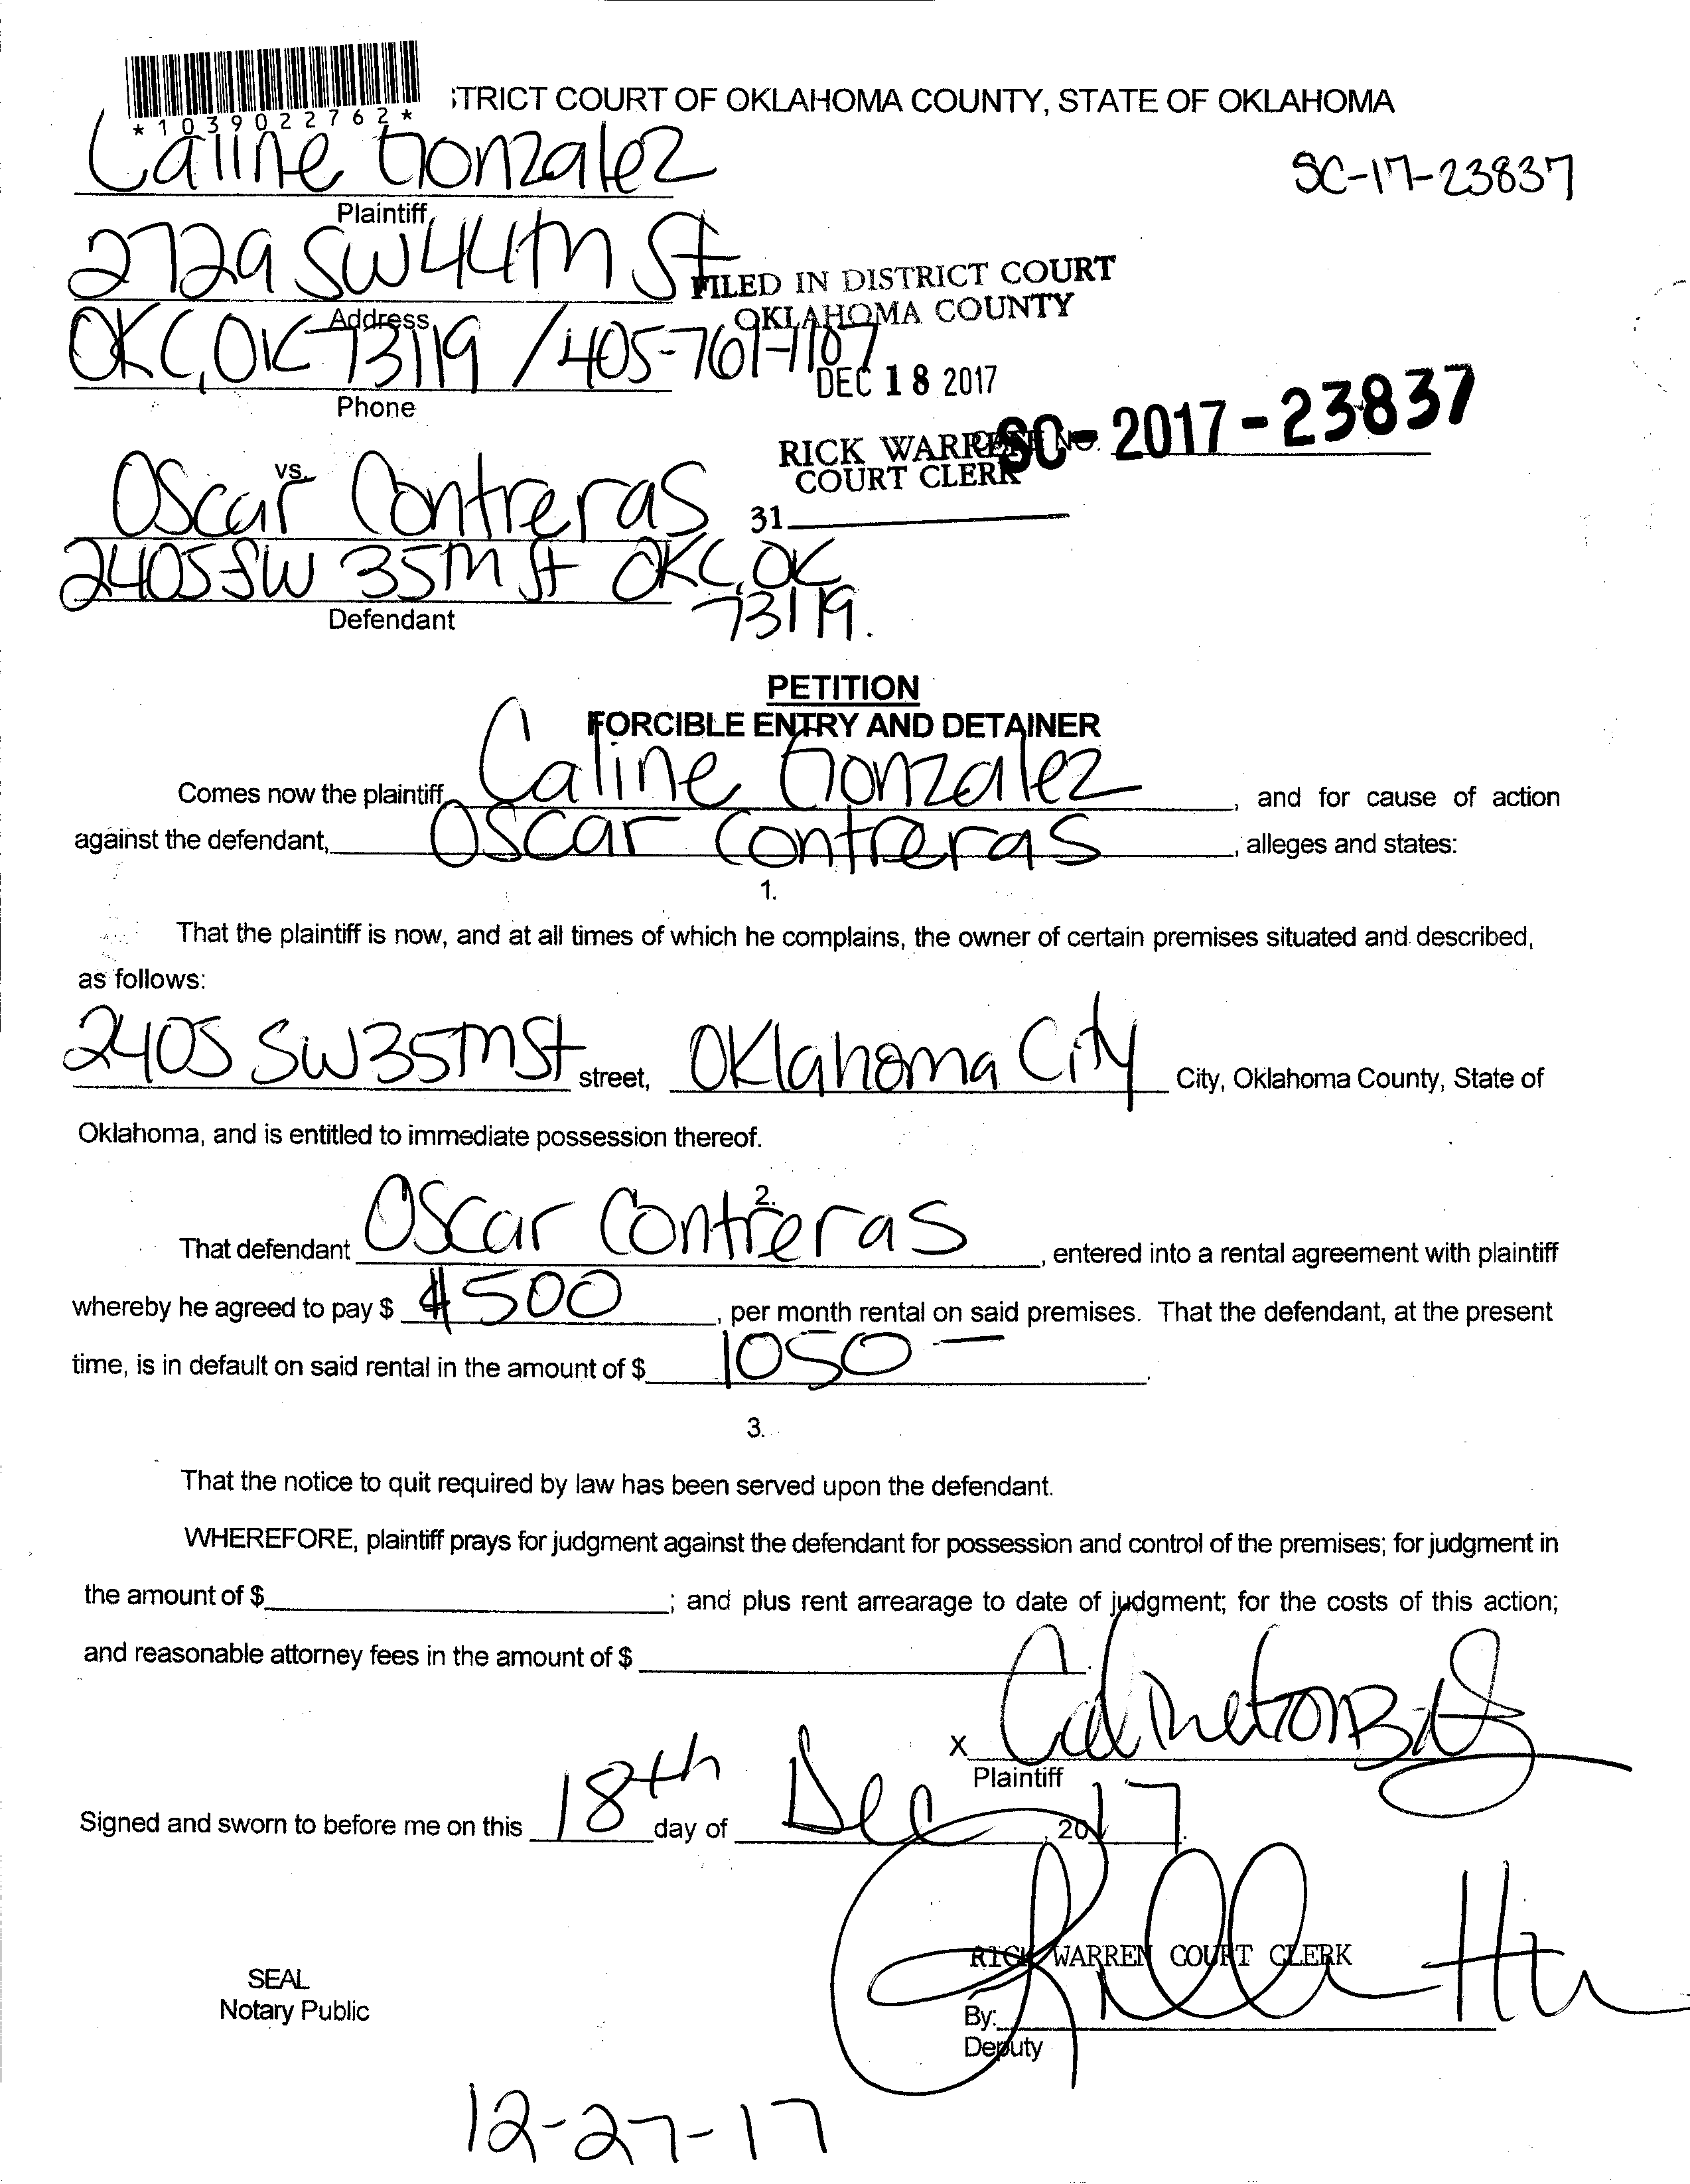 *1039022762*
TRICT COURT OF OKLAHOMA COUNTY, STATE OF OKLAHOMA
Caline Gonzalez
SC-17-23837
Plaintiff
2729 SW 44th St
FILED IN DISTRICT COURT
OKLAHOMA COUNTY
Address
OKC, OK 73119 / 405-761-1107
DEC 18 2017
Phone
SC-2017-23837
RICK WARREN
COURT CLERK
vs.
Oscar Contreras
31
2405 SW 35th St OKC, OK
73119.
Defendant
PETITION
FORCIBLE ENTRY AND DETAINER
Comes now the plaintiff, Caline Gonzalez, and for cause of action
against the defendant, Oscar Contreras, alleges and states:
1.
That the plaintiff is now, and at all times of which he complains, the owner of certain premises situated and described,
as follows:
2405 SW 35th St street, Oklahoma City City, Oklahoma County, State of
Oklahoma, and is entitled to immediate possession thereof.
2.
That defendant Oscar Contreras, entered into a rental agreement with plaintiff
whereby he agreed to pay $ $500, per month rental on said premises. That the defendant, at the present
time, is in default on said rental in the amount of $ 1050-.
3.
That the notice to quit required by law has been served upon the defendant.
WHEREFORE, plaintiff prays for judgment against the defendant for possession and control of the premises; for judgment in
the amount of $ ; and plus rent arrearage to date of judgment; for the costs of this action;
and reasonable attorney fees in the amount of $
X
Plaintiff
Signed and sworn to before me on this 18th day of Dec, 2017.
RICK WARREN COURT CLERK
SEAL
Notary Public
By:
Deputy
12-27-17